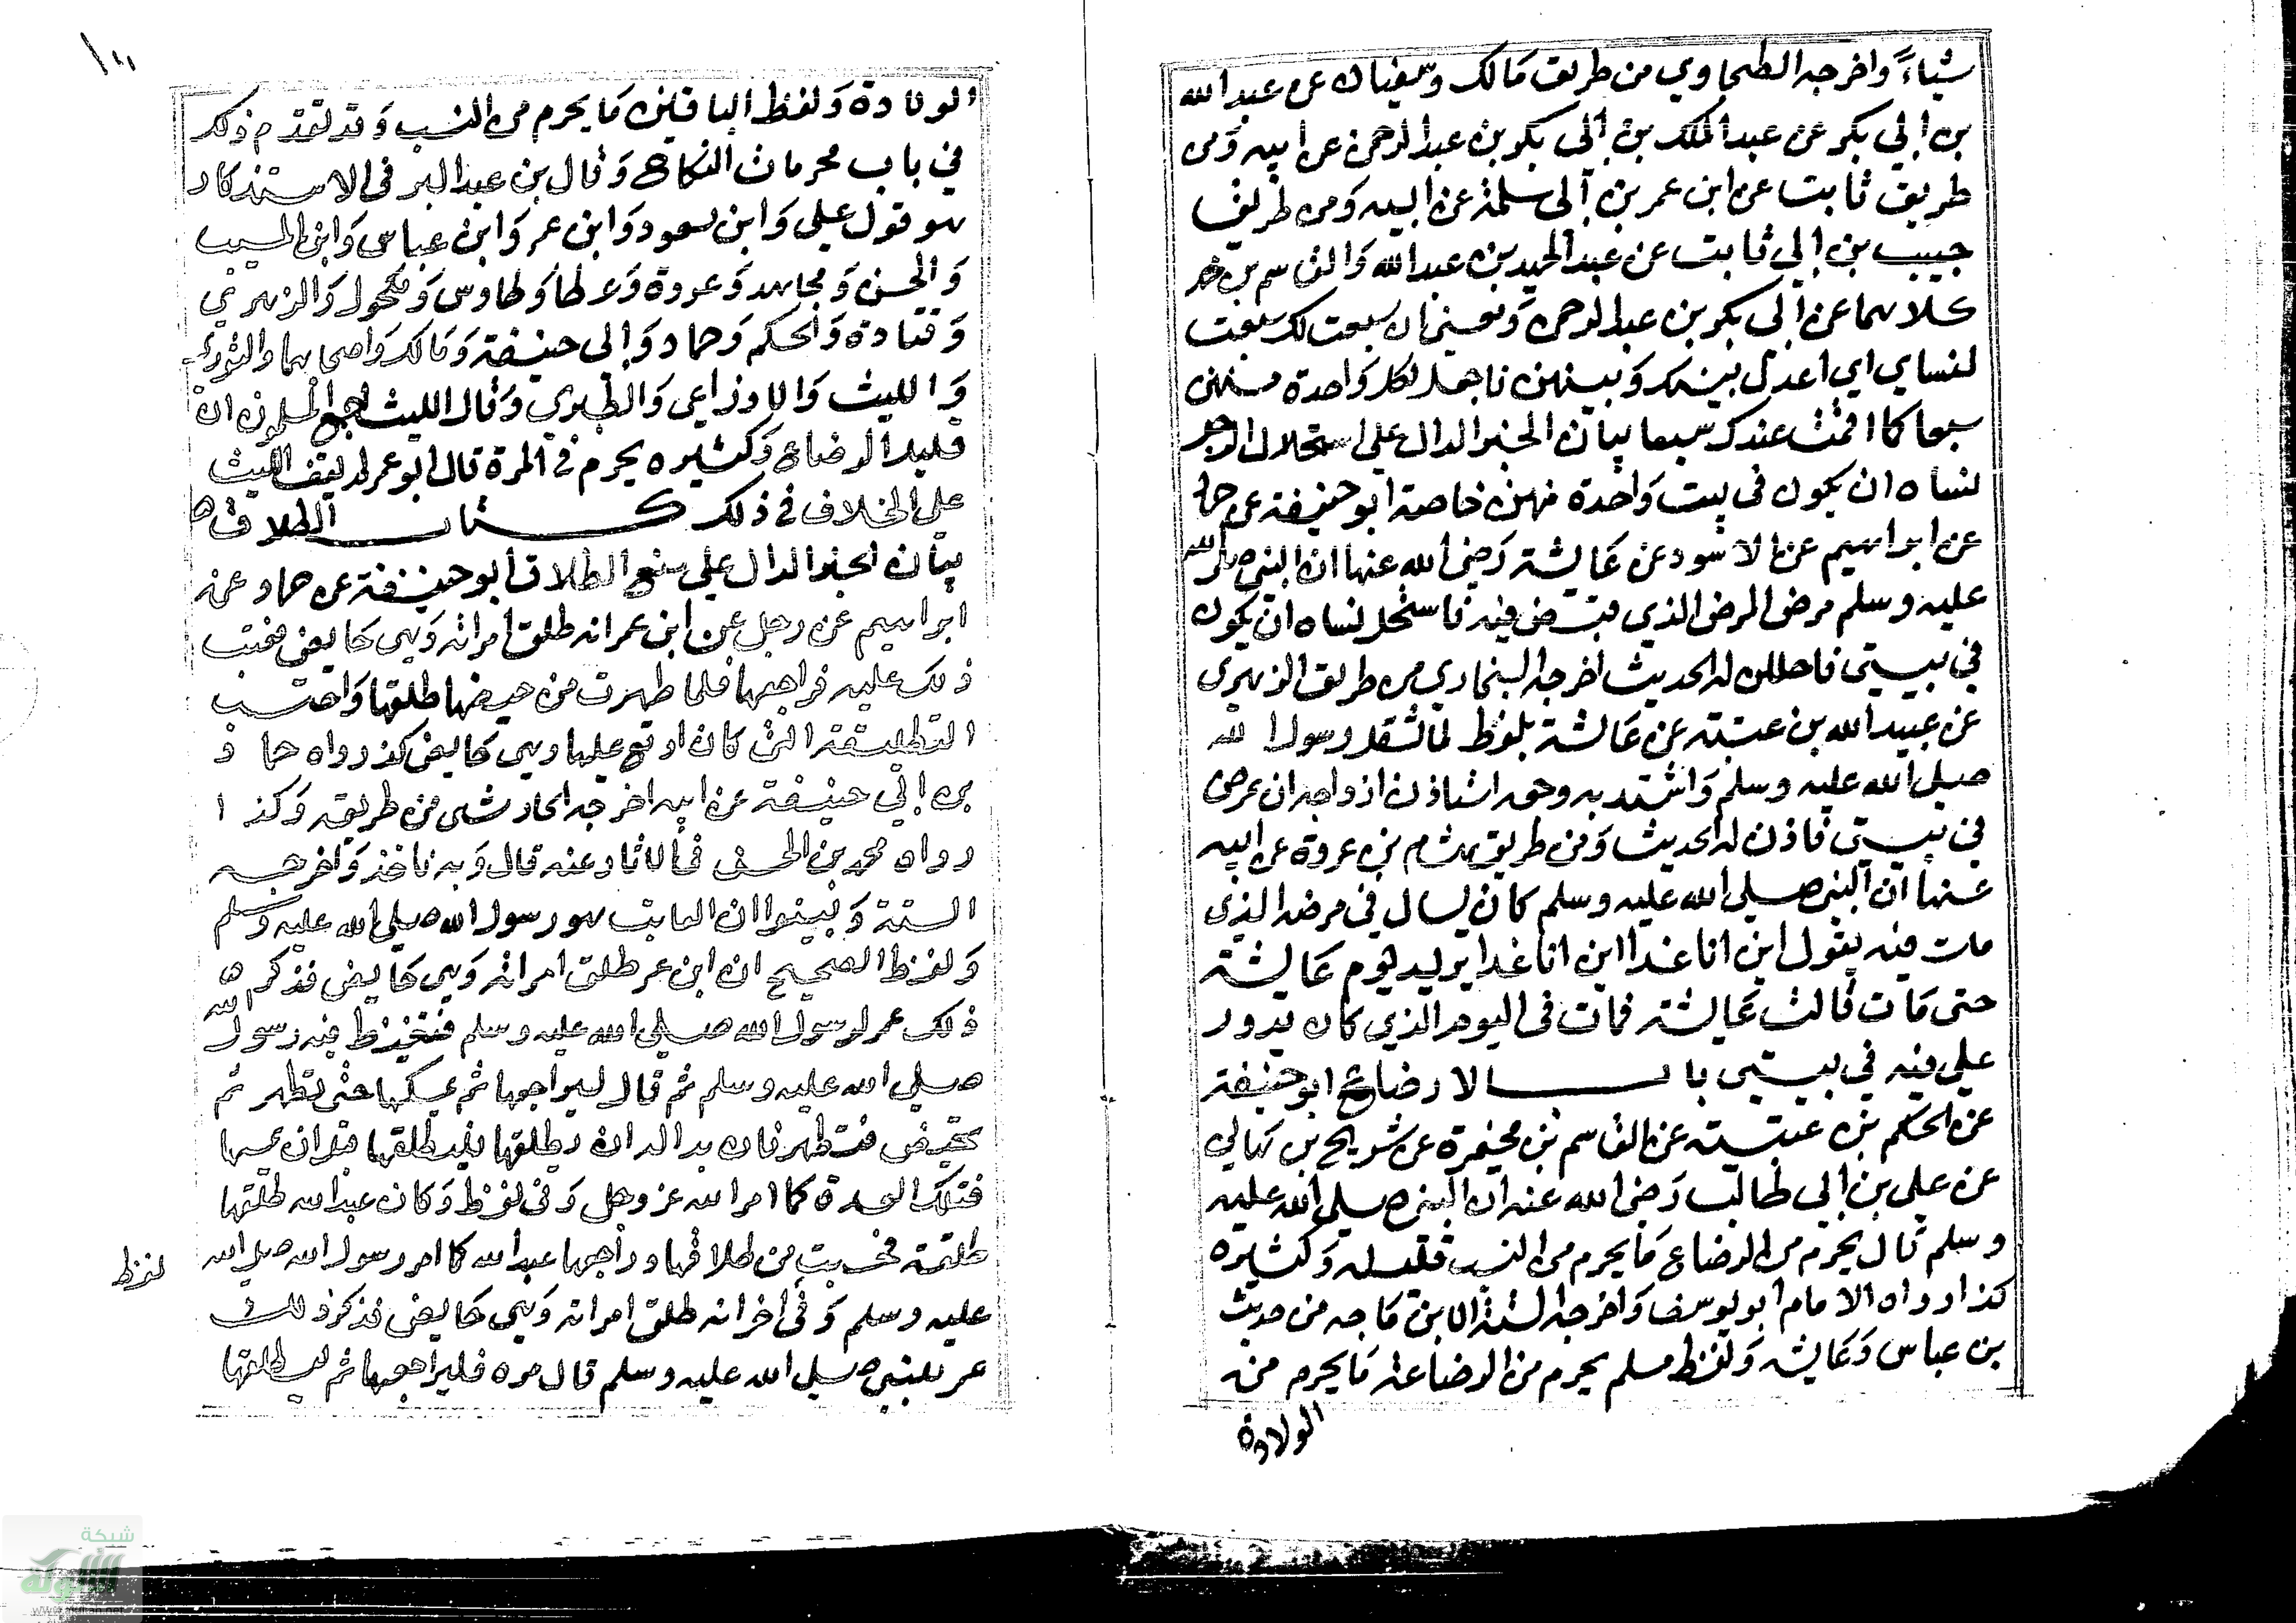 شياءً واخرجه الطحاوي من طريق مالك وسفيان عن عبد الله
بن ابي بكر عن عبد الملك بن ابى بكر بن عبد الرحمن عن ابيه ومن
طريق ثابت عن ابن عمر بن ابى سلمة عن ابيه ومن طريق
حبيب بن ابي ثابت عن عبد الحميد بن عبد الله والقاسم بن محمد
كلاهما عن ابى بكر بن عبد الرحمن ومعنى ان سبعت لك سبعت
لنساي اي اعدل بينك وبينهن فاجعل لكل واحدة منهن
سبعا كما اقمت عندك سبعا بيان الخبر الدال على استحلال الرجل
نساه ان يكون فى بيت واحدة منهن خاصة ابو حنيفة عن حما
عن ابراهيم عن الاسود عن عايشة رضى الله عنها ان النبى صلى الله
عليه وسلم مرض المرض الذي قبض فيه فاستحل نساه ان يكون
في بيتى فاحللن له الحديث اخرجه البخاري من طريق الزهري
عن عبيد الله بن عتبة عن عايشة بلفظ لما ثقل رسول الله
صلى الله عليه وسلم واشتد به وجعه استاذن ازواجه ان يمرض
في بيتى فاذن له الحديث ومن طريق هشام بن عروة عن ابيه
عنها ان النبى صلى الله عليه وسلم كان يسال في مرضه الذي
مات فيه يقول اين انا غدا اين انا غدا يريد يوم عايشة
حتى مات قالت عايشة فمات فى اليوم الذي كان يدور
علي فيه في بيتي باب الارضاع ابو حنيفة
عن الحكم بن عتيبة عن القاسم بن مخيمرة عن شريح بن هاني
عن على بن ابى طالب رضى الله عنه ان النبى صلى الله عليه
وسلم قال يحرم من الرضاع ما يحرم من النسب قليله وكثيره
كذا رواه الامام ابو يوسف واخرجه الستة الا ابن ماجه من حديث
بن عباس وعايشه ولفظ مسلم يحرم من الرضاعة ما يحرم من
الولادة
الولادة ولفظ الباقين ما يحرم من النسب وقد تقدم ذلك
في باب محرمات النكاح وقال بن عبد البر فى الاستذكار
هو قول علي وابن مسعود وابن عمر وابن عباس وابن المسيب
والحسن ومجاهد وعروة وعطا وطاوس ومكحول والزهري
وقتادة والحكم وحماد وابى حنيفة ومالك واصحابهما والثوري
والليث والاوزاعي والطبري وقال الليث اجمع المسلمون ان
قليل الرضاع وكثيره يحرم فى المرة قال ابو عمر لم يقف الليث
على الخلاف في ذلك كتاب الطلاق
بيان الخبر الدال على منع الطلاق ابو حنيفة عن حماد عن
ابراهيم عن رجل عن ابن عمر انه طلق امراته وهي حايض فعتب
ذلك عليه فراجعها فلما طهرت من حيضها طلقها واحتسب
التطليقة التى كان اوقع عليها وهي حايض كذا رواه حماد
بن ابي حنيفة عن ابيه اخرجه الحارثى من طريقه وكذا
رواه محمد بن الحسن في الاثار عنه قال وبه ناخذ واخرجه
الستة وبينوا ان العايب هو رسول الله صلى الله عليه وسلم
ولفظ الصحيح ان ابن عمر طلق امراته وهي حايض فذكر
ذلك عمر لرسول الله صلى الله عليه وسلم فتغيظ فيه رسول الله
صلى الله عليه وسلم ثم قال ليراجعها ثم يمسكها حتى تطهر ثم
تحيض فتطهر فان بدا له ان يطلقها فليطلقها قبل ان يمسها
فتلك العدة كما امر الله عز وجل وفي لفظ وكان عبد الله طلقها
طلقة فحسبت من طلاقها وراجعها عبد الله كما امر رسول الله صلى الله
لفظ
عليه وسلم وفى اخر انه طلق امراته وهي حايض فذكر ذلك
عمر للنبي صلى الله عليه وسلم قال مره فليراجعها ثم ليطلقها
شبكة
الألوكة
www.alukah.net